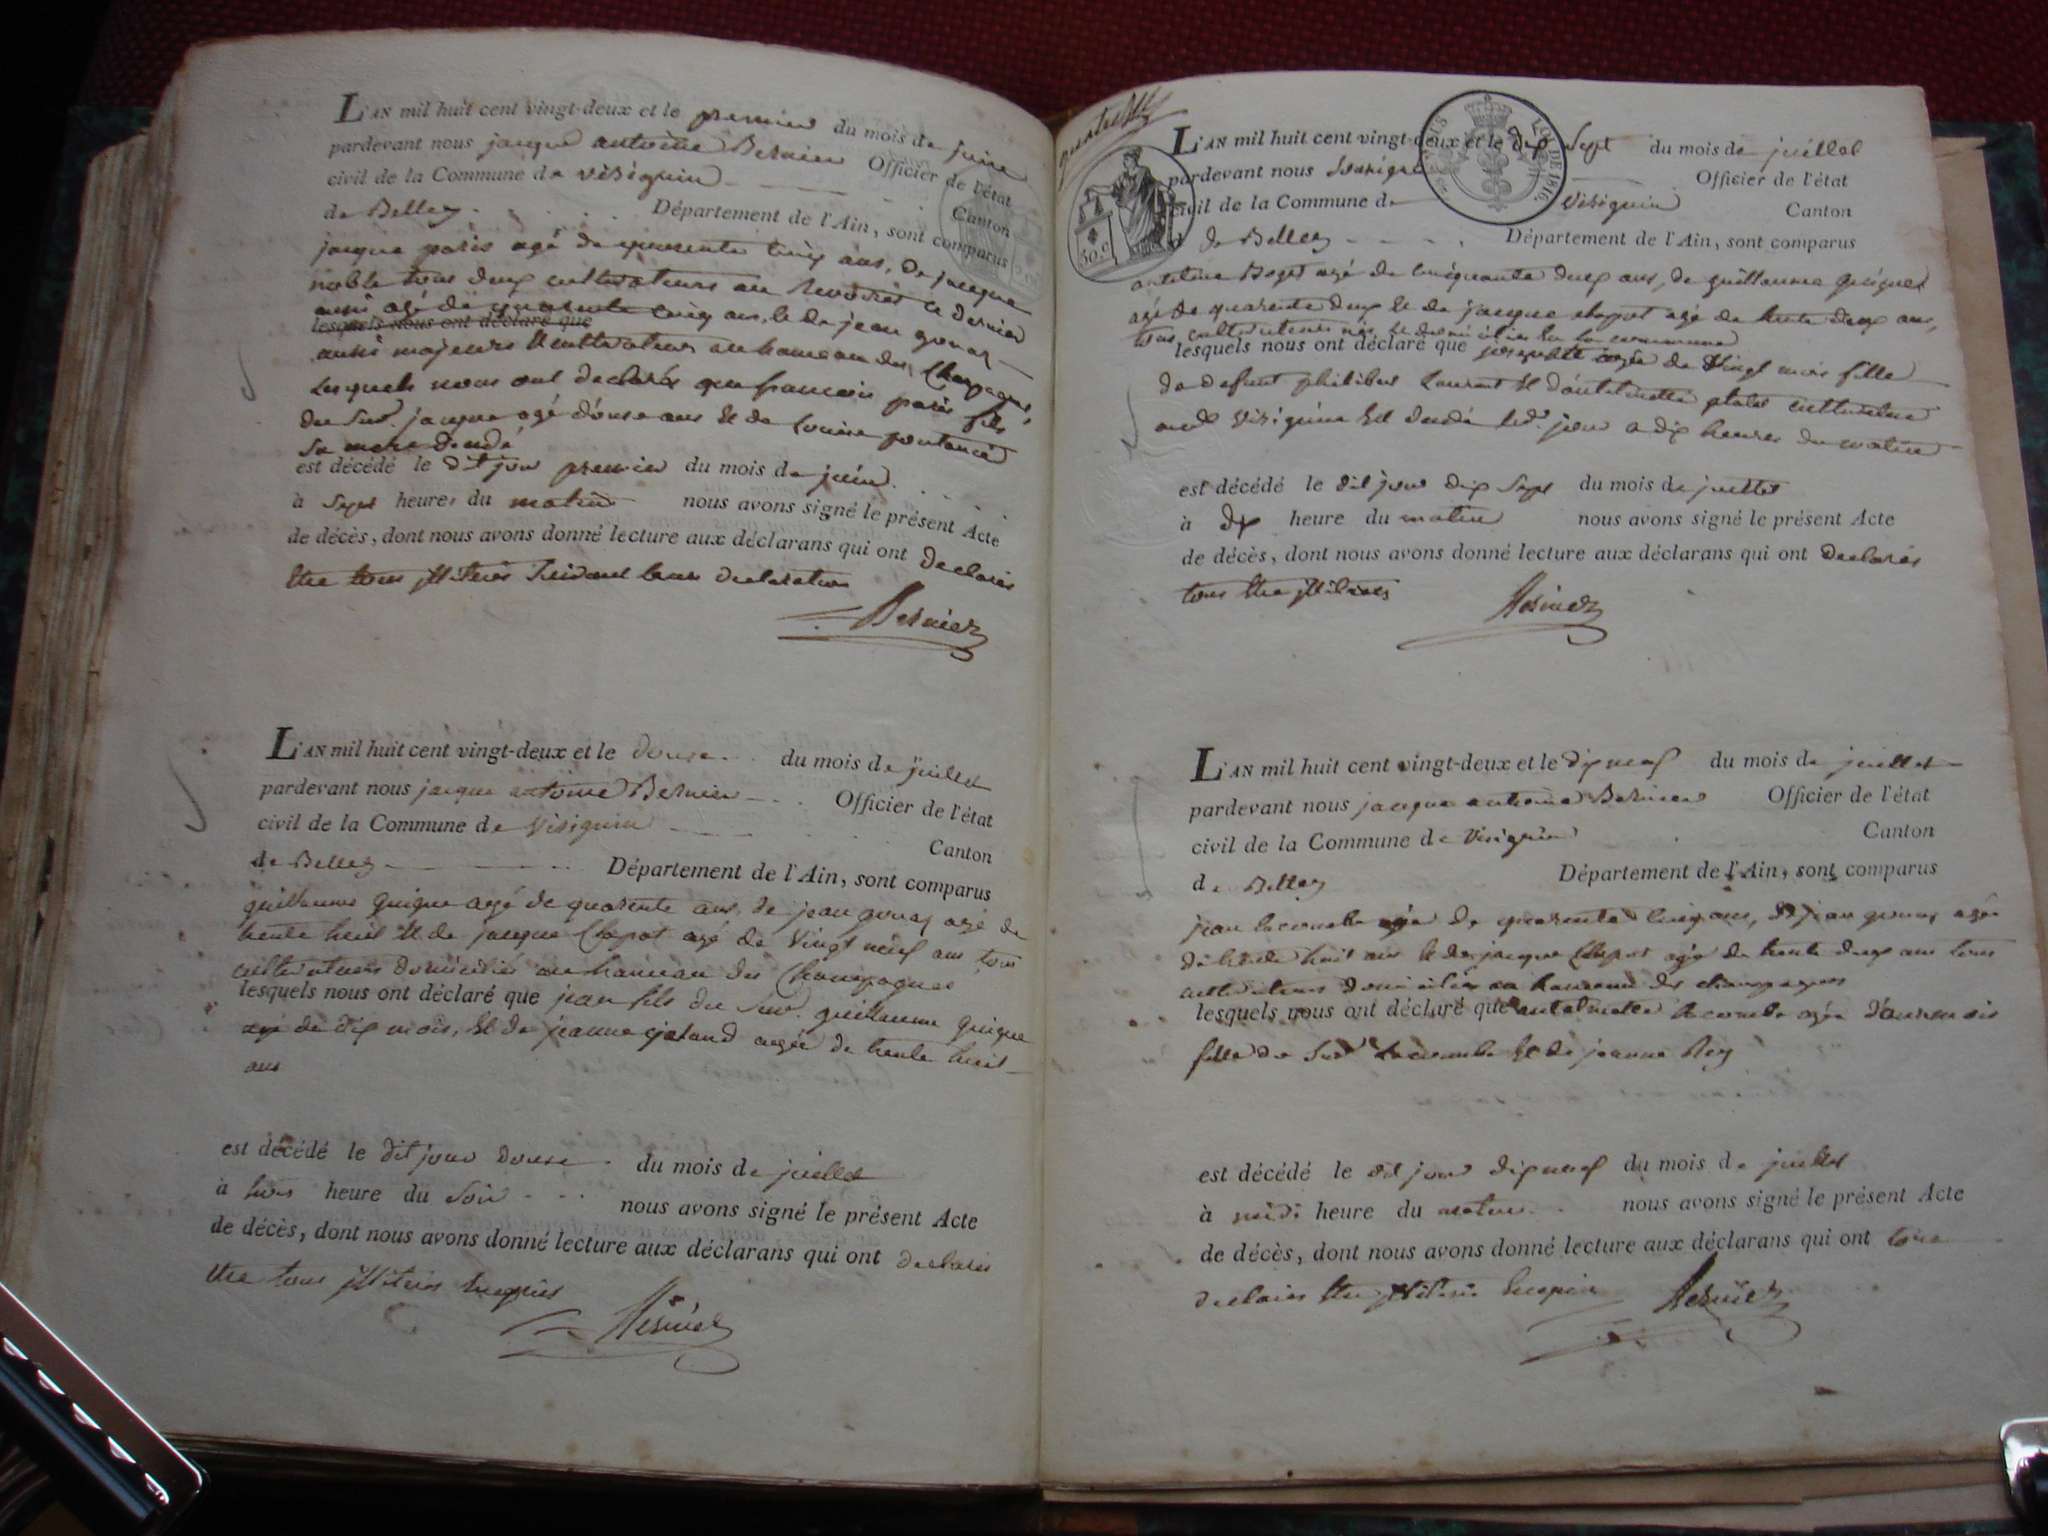 L'AN mil huit cent vingt-deux et le premier du mois de juin
pardevant nous jacque antoine Bernier Officier de l'état
civil de la Commune de virignin
de Belley Canton
Département de l'Ain, sont comparus
jacque paris agé de quarente cinq ans, de jacque
noble tous deux cultivateurs ce dernier
aussi agé de quarente cinq ans, et de jean gonaz
lesquels nous ont déclaré que
aussi majeurs cultivateurs au hameau des Champagnes
Lesquels nous ont declarés que francois paris fils
du Sus. jacque agé d'onse ans et de Louise
Sa mere
est décédé le dit jour premier du mois de juin
à Sept heures du matin nous avons signé le présent Acte
de décès, dont nous avons donné lecture aux déclarans qui ont declarés
être tous illitérés leur declaration
Bernier
L'AN mil huit cent vingt-deux et le douse du mois de juillet
pardevant nous jacque antoine Bernier Officier de l'état
civil de la Commune de Virignin
de Belley Canton
Département de l'Ain, sont comparus
guillaume guigue agé de quarente ans, de jean gonaz agé de
trente huit et de jacque Chapot agé de vingt neuf ans tous
cultivateurs domiciliés au hameau des Champagnes
lesquels nous ont déclaré que jean fils du Sus. guillaume guigue
agé de dix mois, et de jeanne agée de trente huit
ans
est décédé le dit jour douse du mois de juillet
à trois heure du Soir nous avons signé le présent Acte
de décès, dont nous avons donné lecture aux déclarans qui ont declarés
être tous illitérés requis
Bernier
L'AN mil huit cent vingt-deux et le dix Sept du mois de juillet
pardevant nous Officier de l'état
civil de la Commune de Virignin
de Belley Canton
Département de l'Ain, sont comparus
LOI DE 1816
50 c
antoine agé de cinquante deux ans, de guillaume guigue
agé de quarente deux et de jacque chapot agé de trente deux ans,
tous cultivateurs
lesquels nous ont déclaré que josephte agée de Vingt mois fille
de defunt philibert Laurent et d'antelmette cultivateur
Virignin est jour a dix heures du matin
est décédé le dit jour dix Sept du mois de juillet
à dix heure du matin nous avons signé le présent Acte
de décès, dont nous avons donné lecture aux déclarans qui ont declarés
tous être illitérés
Bernier
L'AN mil huit cent vingt-deux et le dix neuf du mois de juillet
pardevant nous jacque antoine Bernier Officier de l'état
civil de la Commune de Virignin
Canton
de Belley Département de l'Ain, sont comparus
jean lacombe agé de quarente cinq ans, de jean gonaz agé
de trente huit ans et de jacque Chapot agé de trente deux ans tous
cultivateurs domiciliés au hameau des champagnes
lesquels nous ont déclaré que antelmette lacombe agée d'onse mois
fille du Sus. Lacombe et de jeanne Rey
est décédé le dit jour dix neuf du mois de juillet
à midi heure du matin nous avons signé le présent Acte
de décès, dont nous avons donné lecture aux déclarans qui ont tous
declarés être illitérés
Bernier